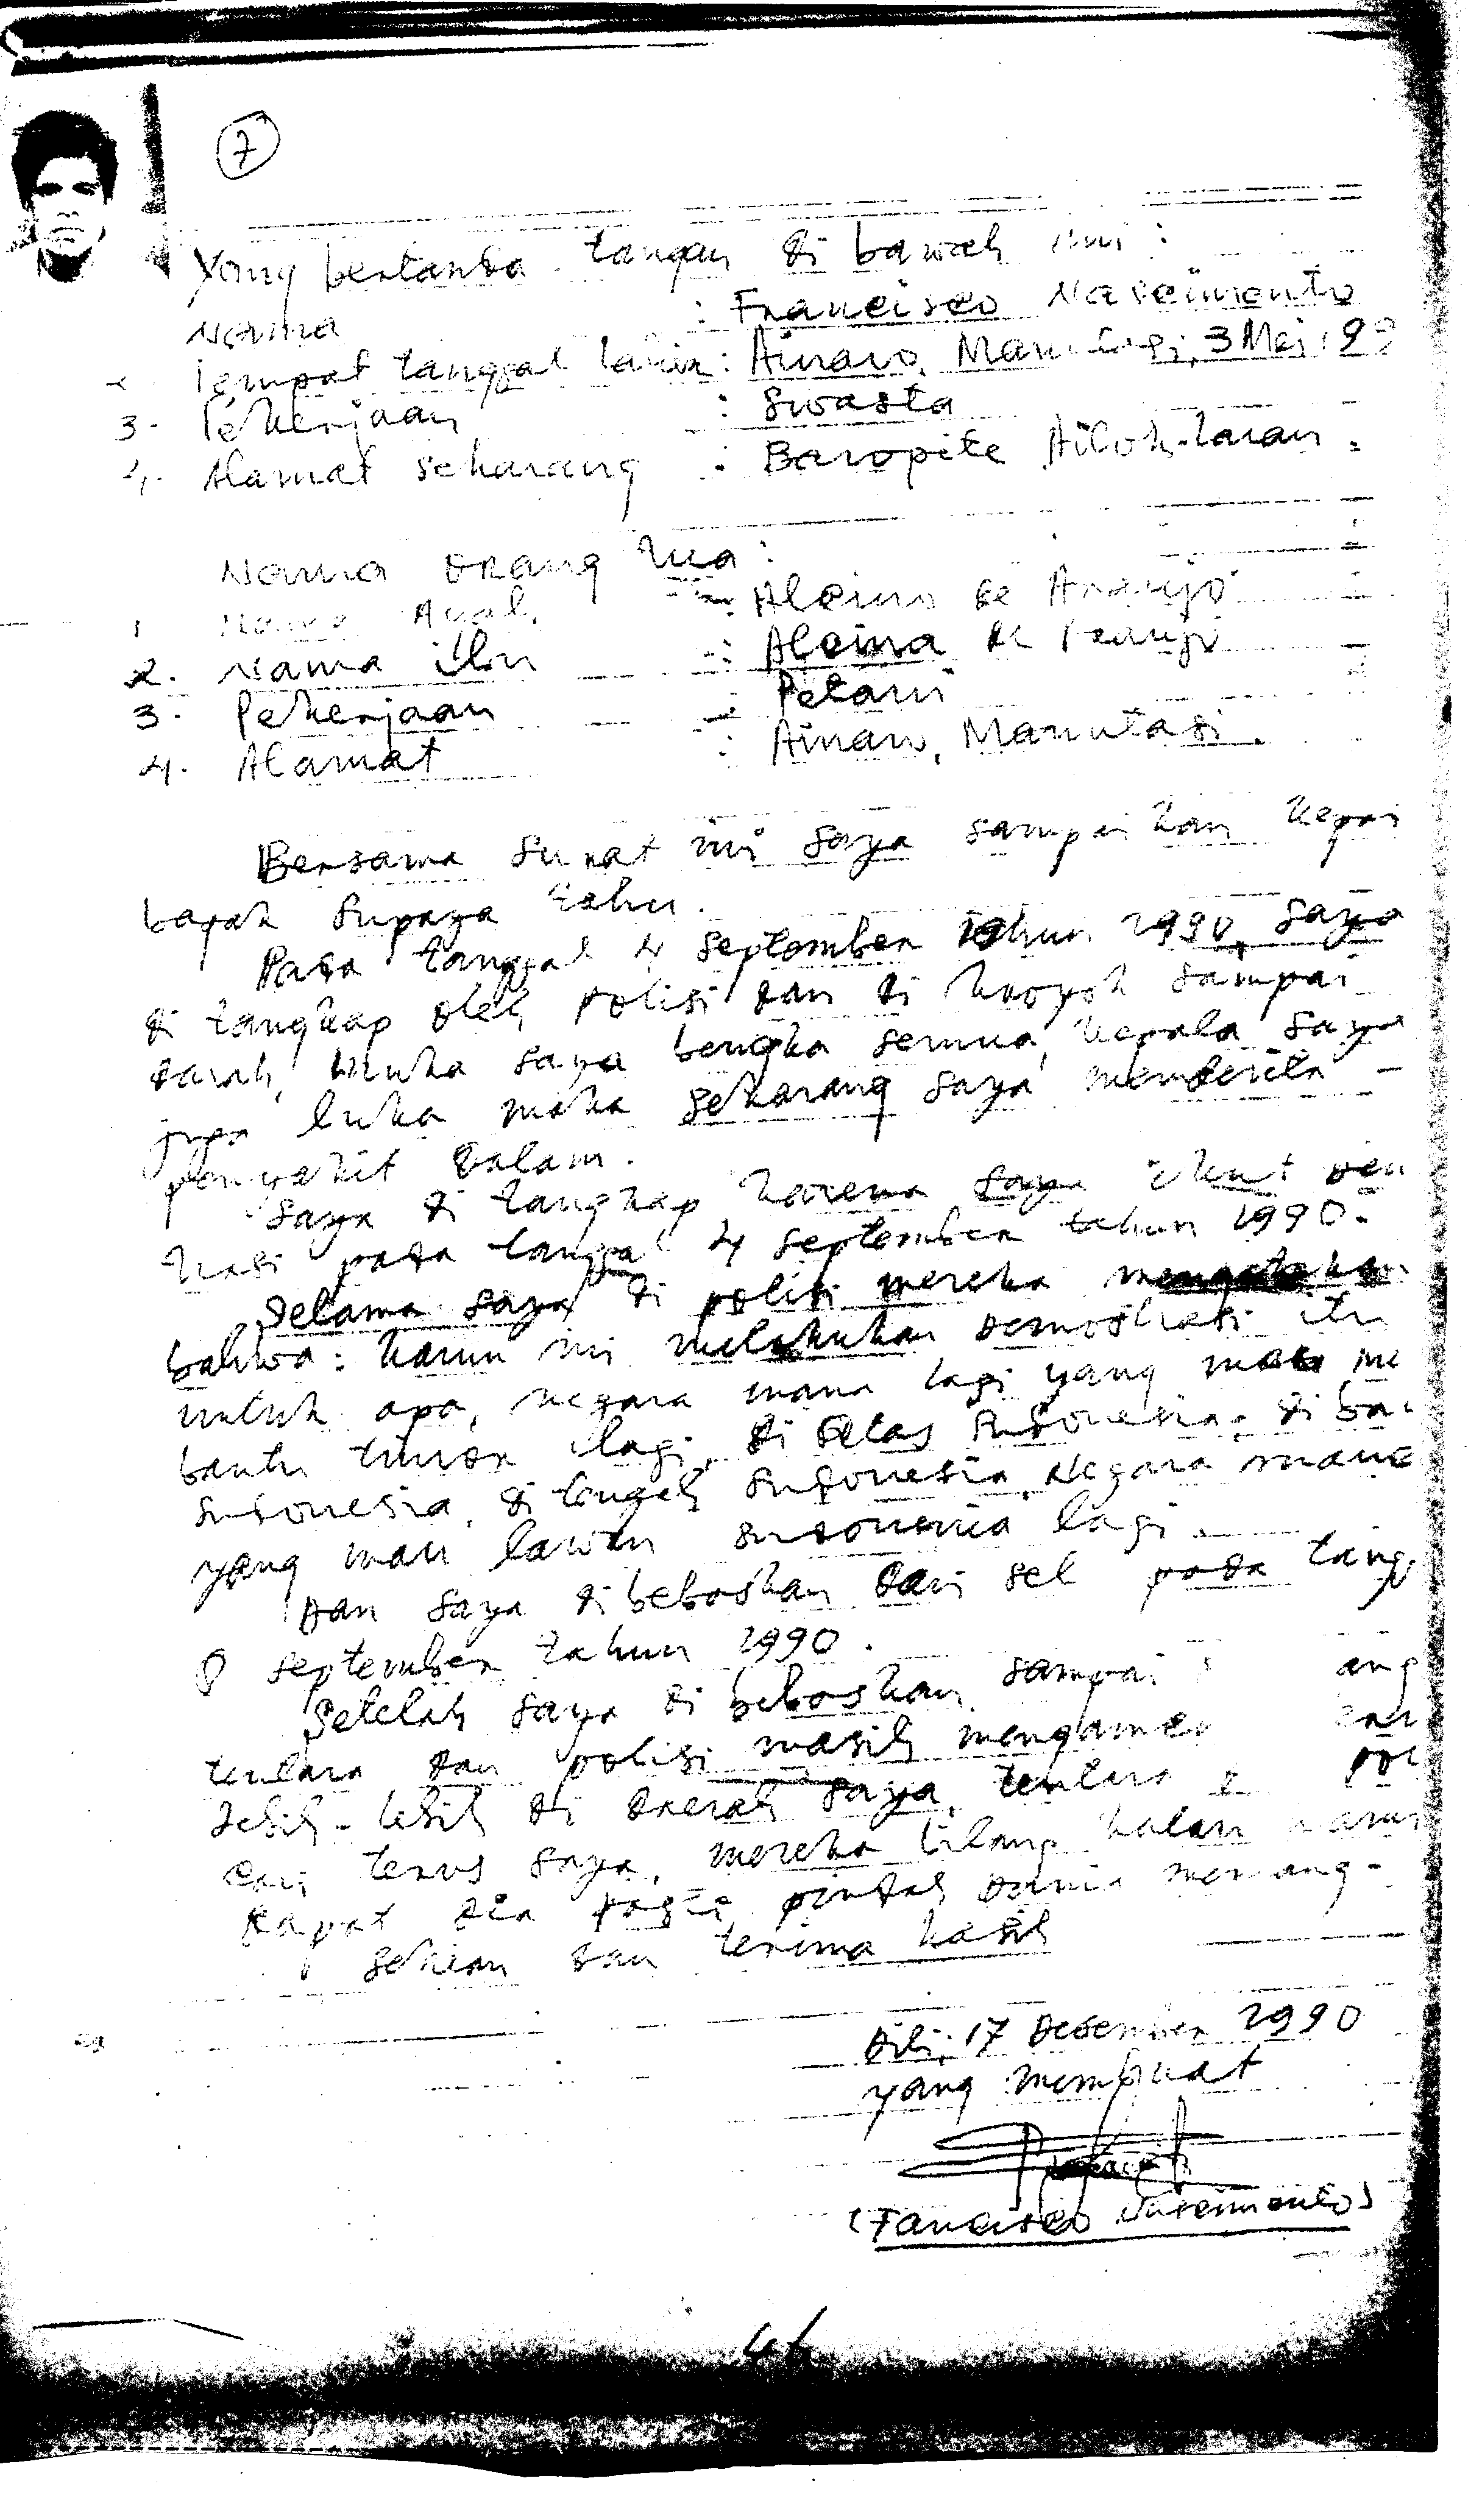 7
Yang bertanda tangan di bawah ini :
Nama : Francisco Nascimento
Tempat tanggal lahir : Ainaro, 3 Mei 19
3. Pekerjaan : Swasta
4. Alamat sekarang : Baropite Ailok-laran.
Nama orang tua :
1 Nama Ayah : Alcino de Araujo
2. Nama ibu : Alcina de Araujo
3. Pekerjaan : Petani
4. Alamat : Ainaro, Manutasi.
Bersama surat ini saya sampaikan kepa
bapak supaya tahu.
Pada tanggal 4 september tahun 1990, saya
di tangkap oleh polisi dan di kroyok sampai
darah, muka saya bengka semua, kepala saya
juga luka maka sekarang saya menderita -
penyakit dalam.
Saya di tangkap karena saya ikut dem
trasi pada tanggal 4 september tahun 1990.
Selama saya di polisi mereka mengatakan
bahwa : kamu ini melakukan demostrasi itu
untuk apa, negara mana lagi yang mau me
bantu timor lagi, di atas Indonesia, di ba
Indonesia, di tengah Indonesia, Negara mana
yang mau lawan Indonesia lagi.
Dan saya di bebaskan dari sel pada tang
8 september tahun 1990.
Setelah saya di bebaskan sampai ang
tentara dan polisi masih
lebih-lebih di daerah saya, tentara pol
cari terus saya, mereka bilang kalau
dapat dia pasti pindah dunia memang-
sekian dan terima kasih
Dili, 17 Desember 1990
yang membuat
(Fancisco Nascimento)
46